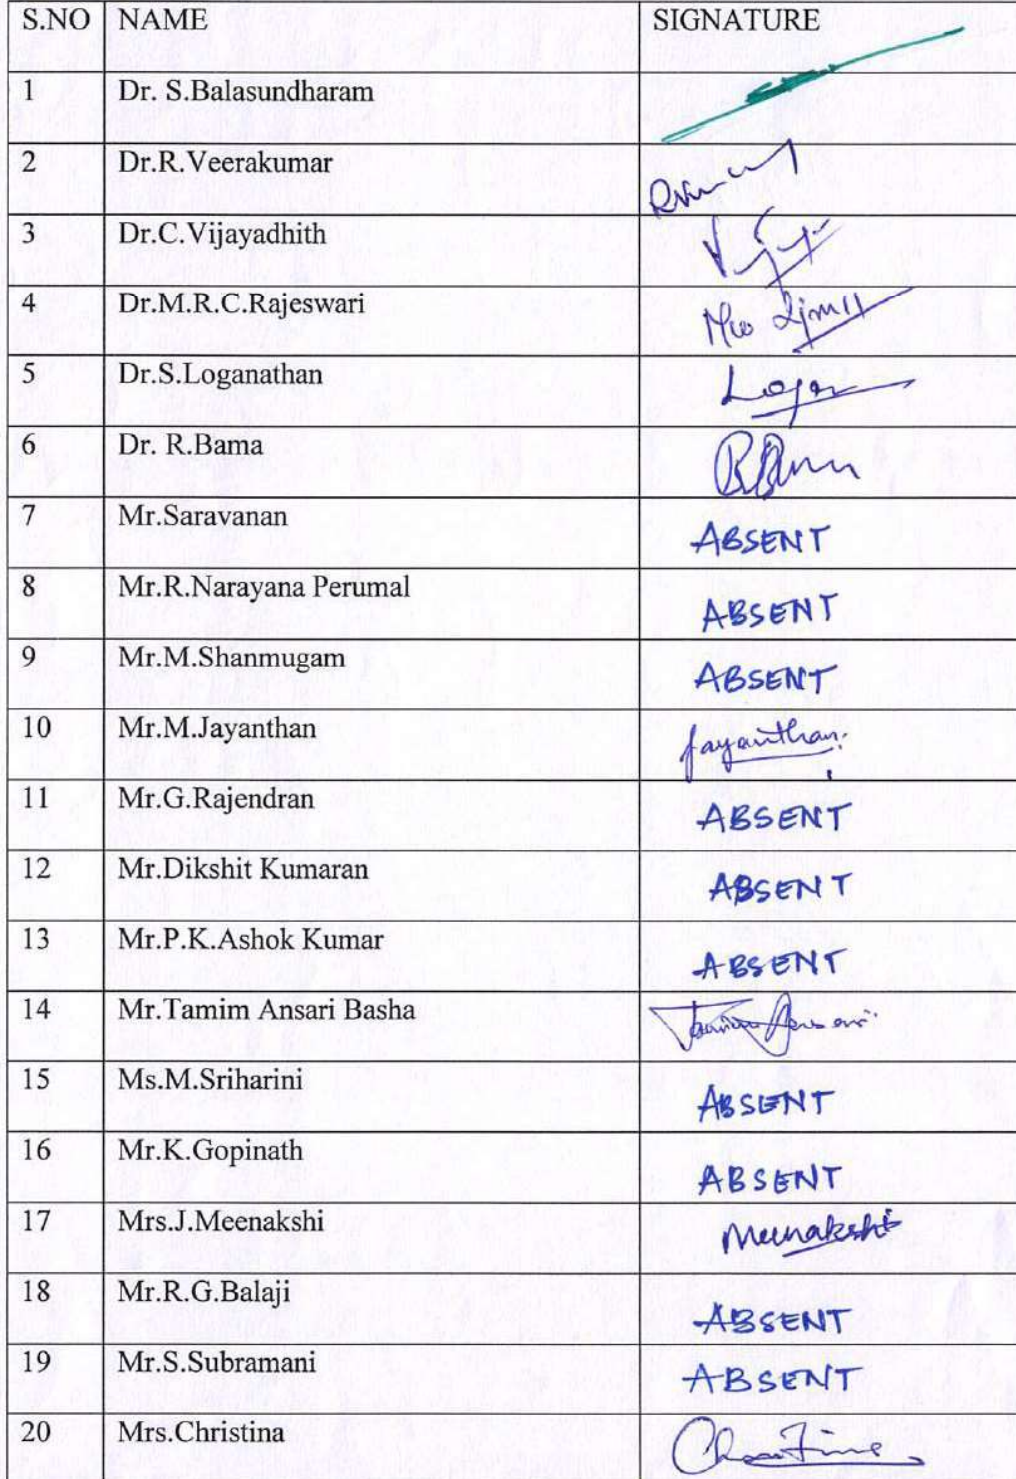 S.NO NAME SIGNATURE
1 Dr. S.Balasundharam
2 Dr.R.Veerakumar
3 Dr.C.Vijayadhith
4 Dr.M.R.C.Rajeswari
5 Dr.S.Loganathan Logan
6 Dr. R.Bama
7 Mr.Saravanan ABSENT
8 Mr.R.Narayana Perumal ABSENT
9 Mr.M.Shanmugam ABSENT
10 Mr.M.Jayanthan Jayanthan
11 Mr.G.Rajendran ABSENT
12 Mr.Dikshit Kumaran ABSENT
13 Mr.P.K.Ashok Kumar ABSENT
14 Mr.Tamim Ansari Basha
15 Ms.M.Sriharini ABSENT
16 Mr.K.Gopinath ABSENT
17 Mrs.J.Meenakshi Meenakshi
18 Mr.R.G.Balaji ABSENT
19 Mr.S.Subramani ABSENT
20 Mrs.Christina